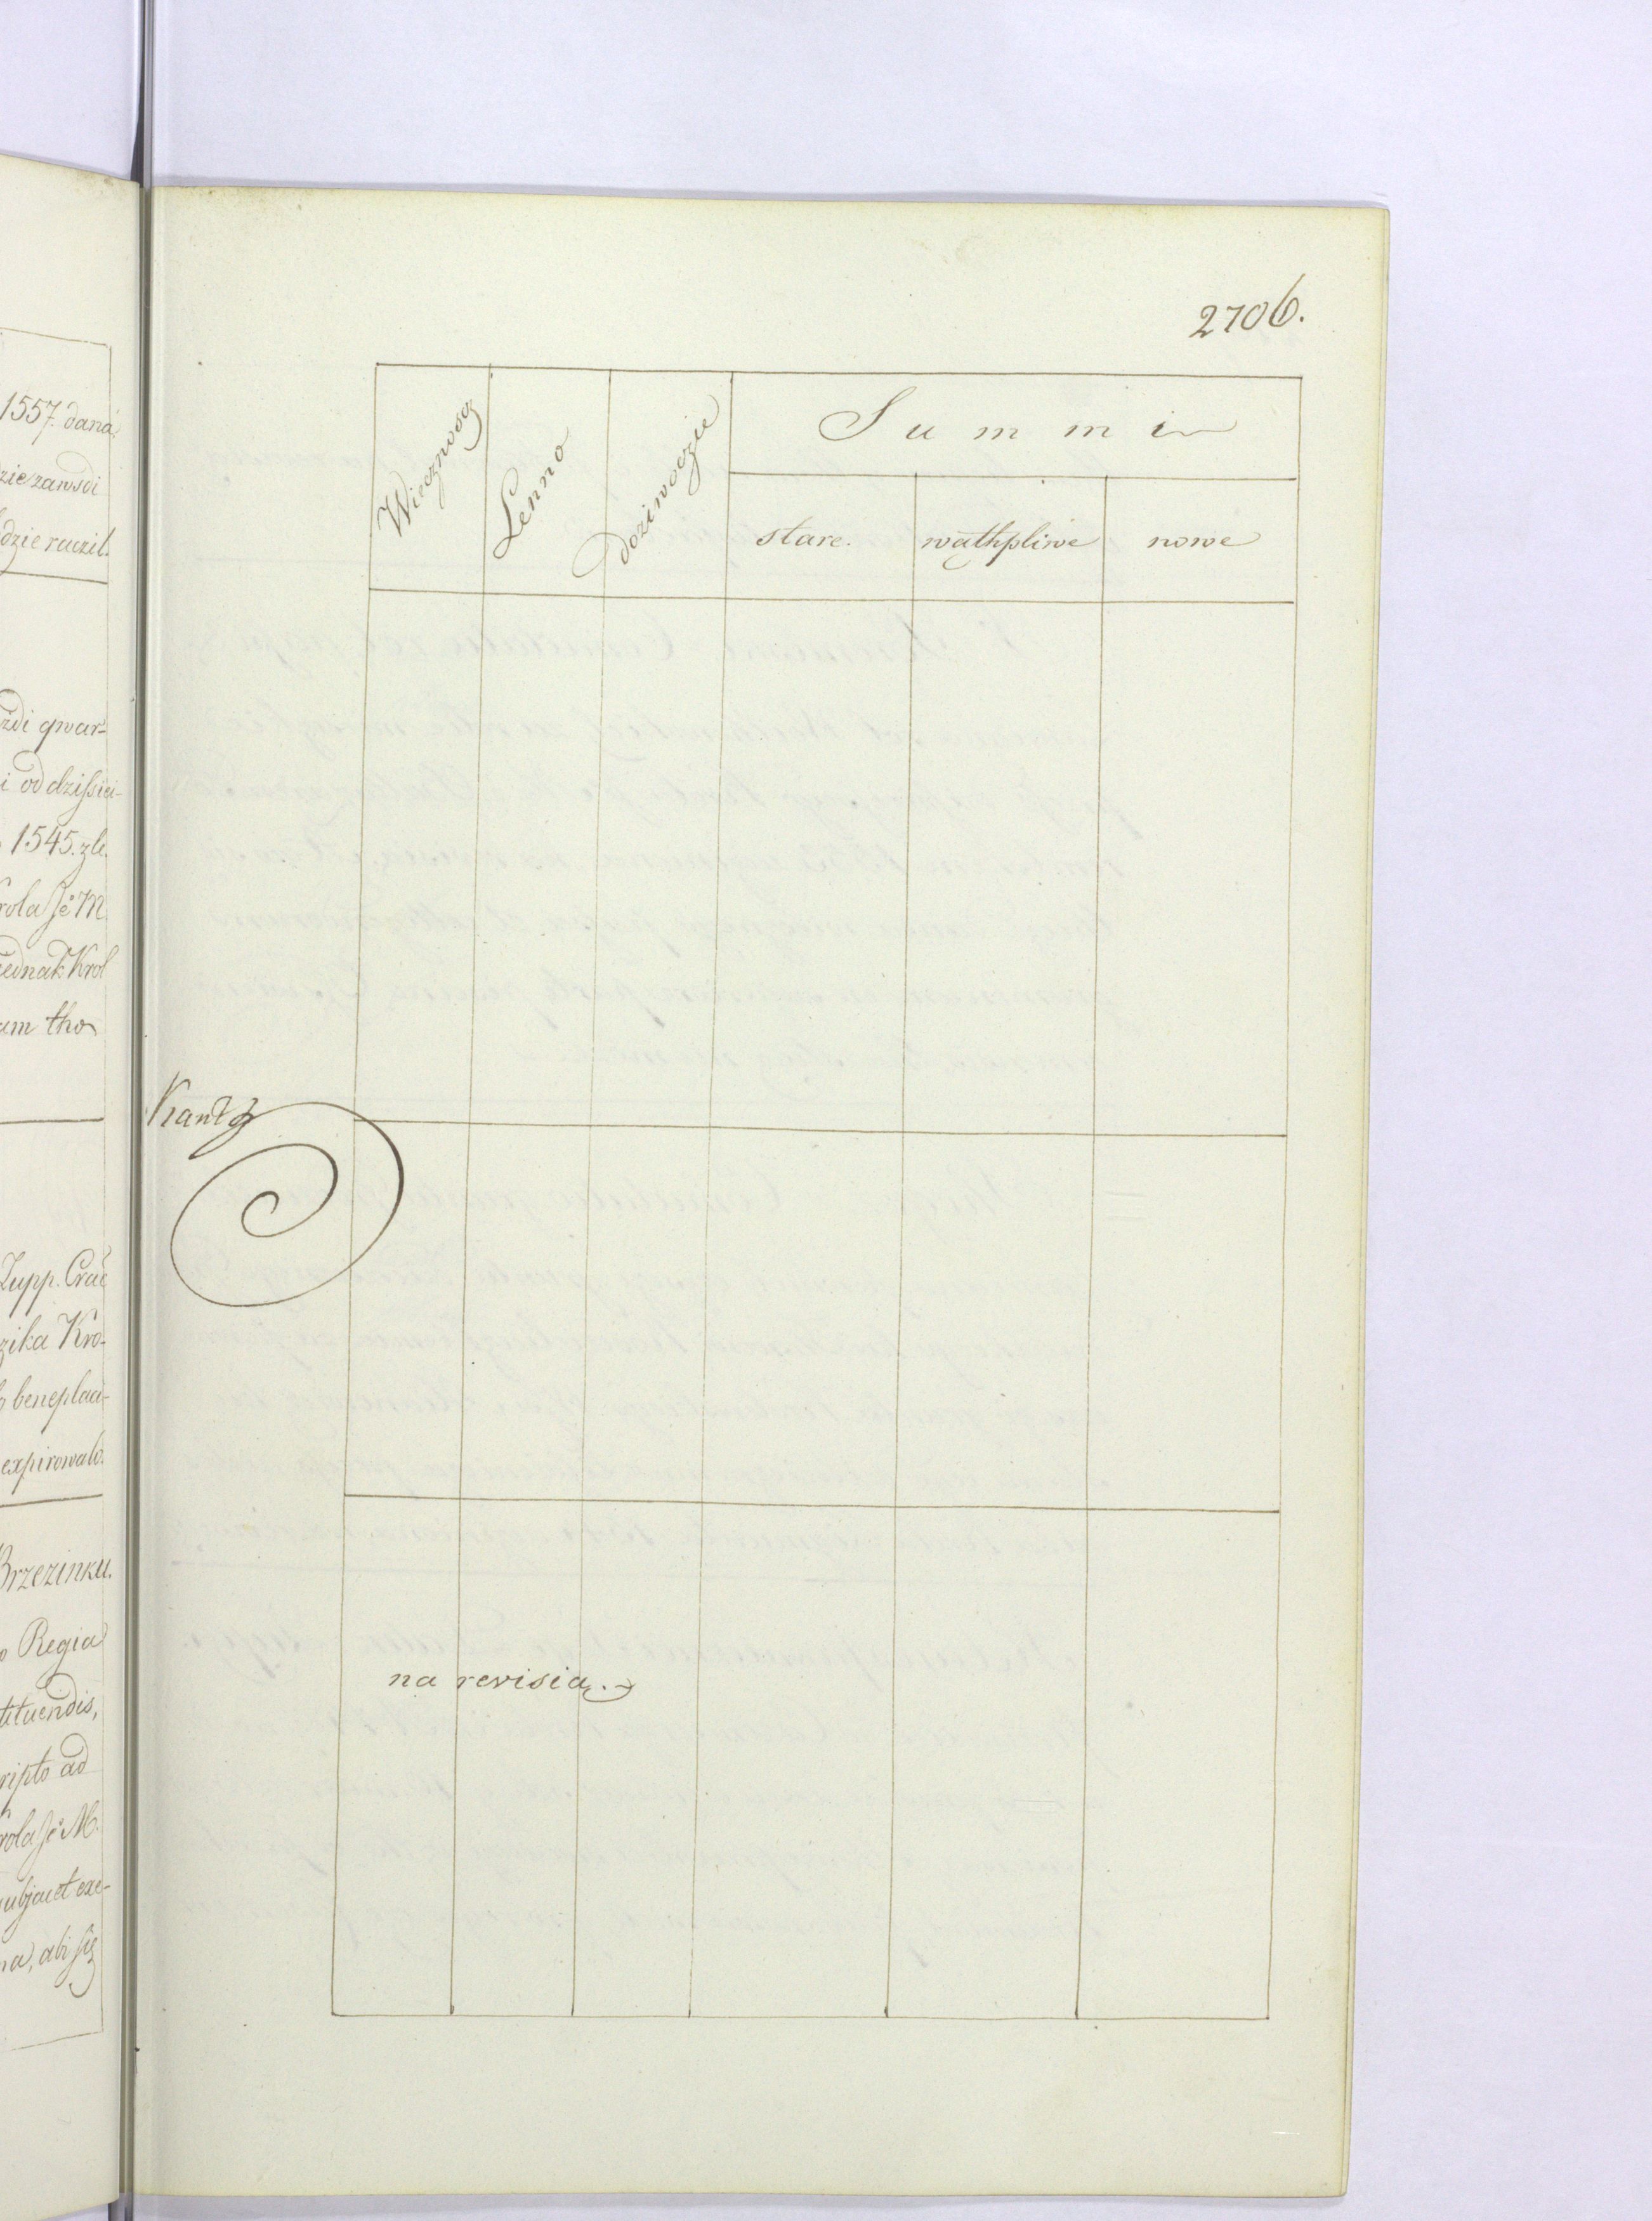 1557. dana
zie zawsdi
dzie raczil.
żdi qwar-
i od dzissiei-
1545. zle.
rola Je M
iednak Krol
am tho
Zupp. Crac
zika Kro-
beneplaci-
expirowalo.
Brzezinku.
o Regia
tituendis,
ripto ad
rola Je M.
subjacet exe-
na, abi się
2706.
Wiecznoscz
Lenno
doziwoczie
Summi
stare.
wąthpliwe
nowe
Kantz
na revisią.